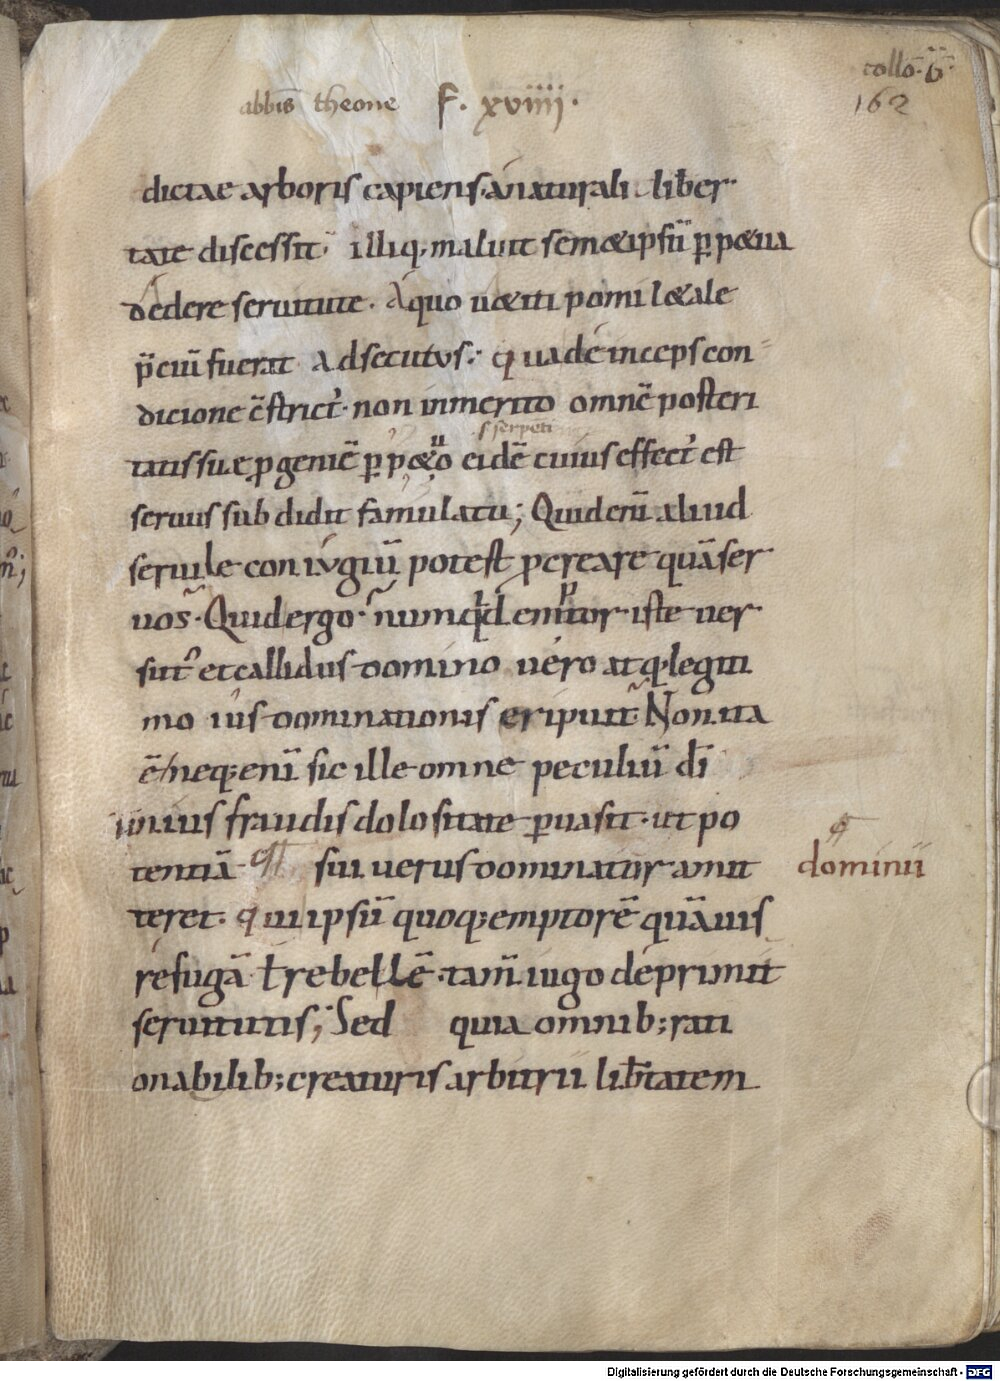 collo̅·
162
abbis̅ theone F. xviiii·
dictae arboris capiens· a naturali liber
tate discessit illiq; maluit sem&ipsū p̱p&ua
dedere seruitute· A quo u&iti pomi l&ale
p̄ciū fuerat adsecutus· qua deinceps con
dicione ē strict᾿· non inmerito omnē posteri
s serpēti
tatis suę ꝓgeniē p̱p&uo eidē cuius effect᾿ est
seruus subdidit famulatu; Quid eni̅ aliud
seruile coniugiū potest ꝓcreare quā ser
uos· Quid ergo· numq̇d emptor iste uer
sut᾿ et callidus domino uero atq; legiti
mo ius dominationis eripuit· Non ita
ē/neq; eni̅ sic ille omne peculiū di̅
unius fraudis dolositate p̱uasit· ut po
tentiā sui uerus dominatur amit
dominii
teret· qui ipsū quoq; emptorē quāuis
refugā ł rebellē· tam̄ iugo deprimit
seruitutis; Sed quia omnib; rati
onabilib; creaturis arbitrii lib̄tatem
Digitalisierung gefördert durch die Deutsche Forschungsgemeinschaft - DFG